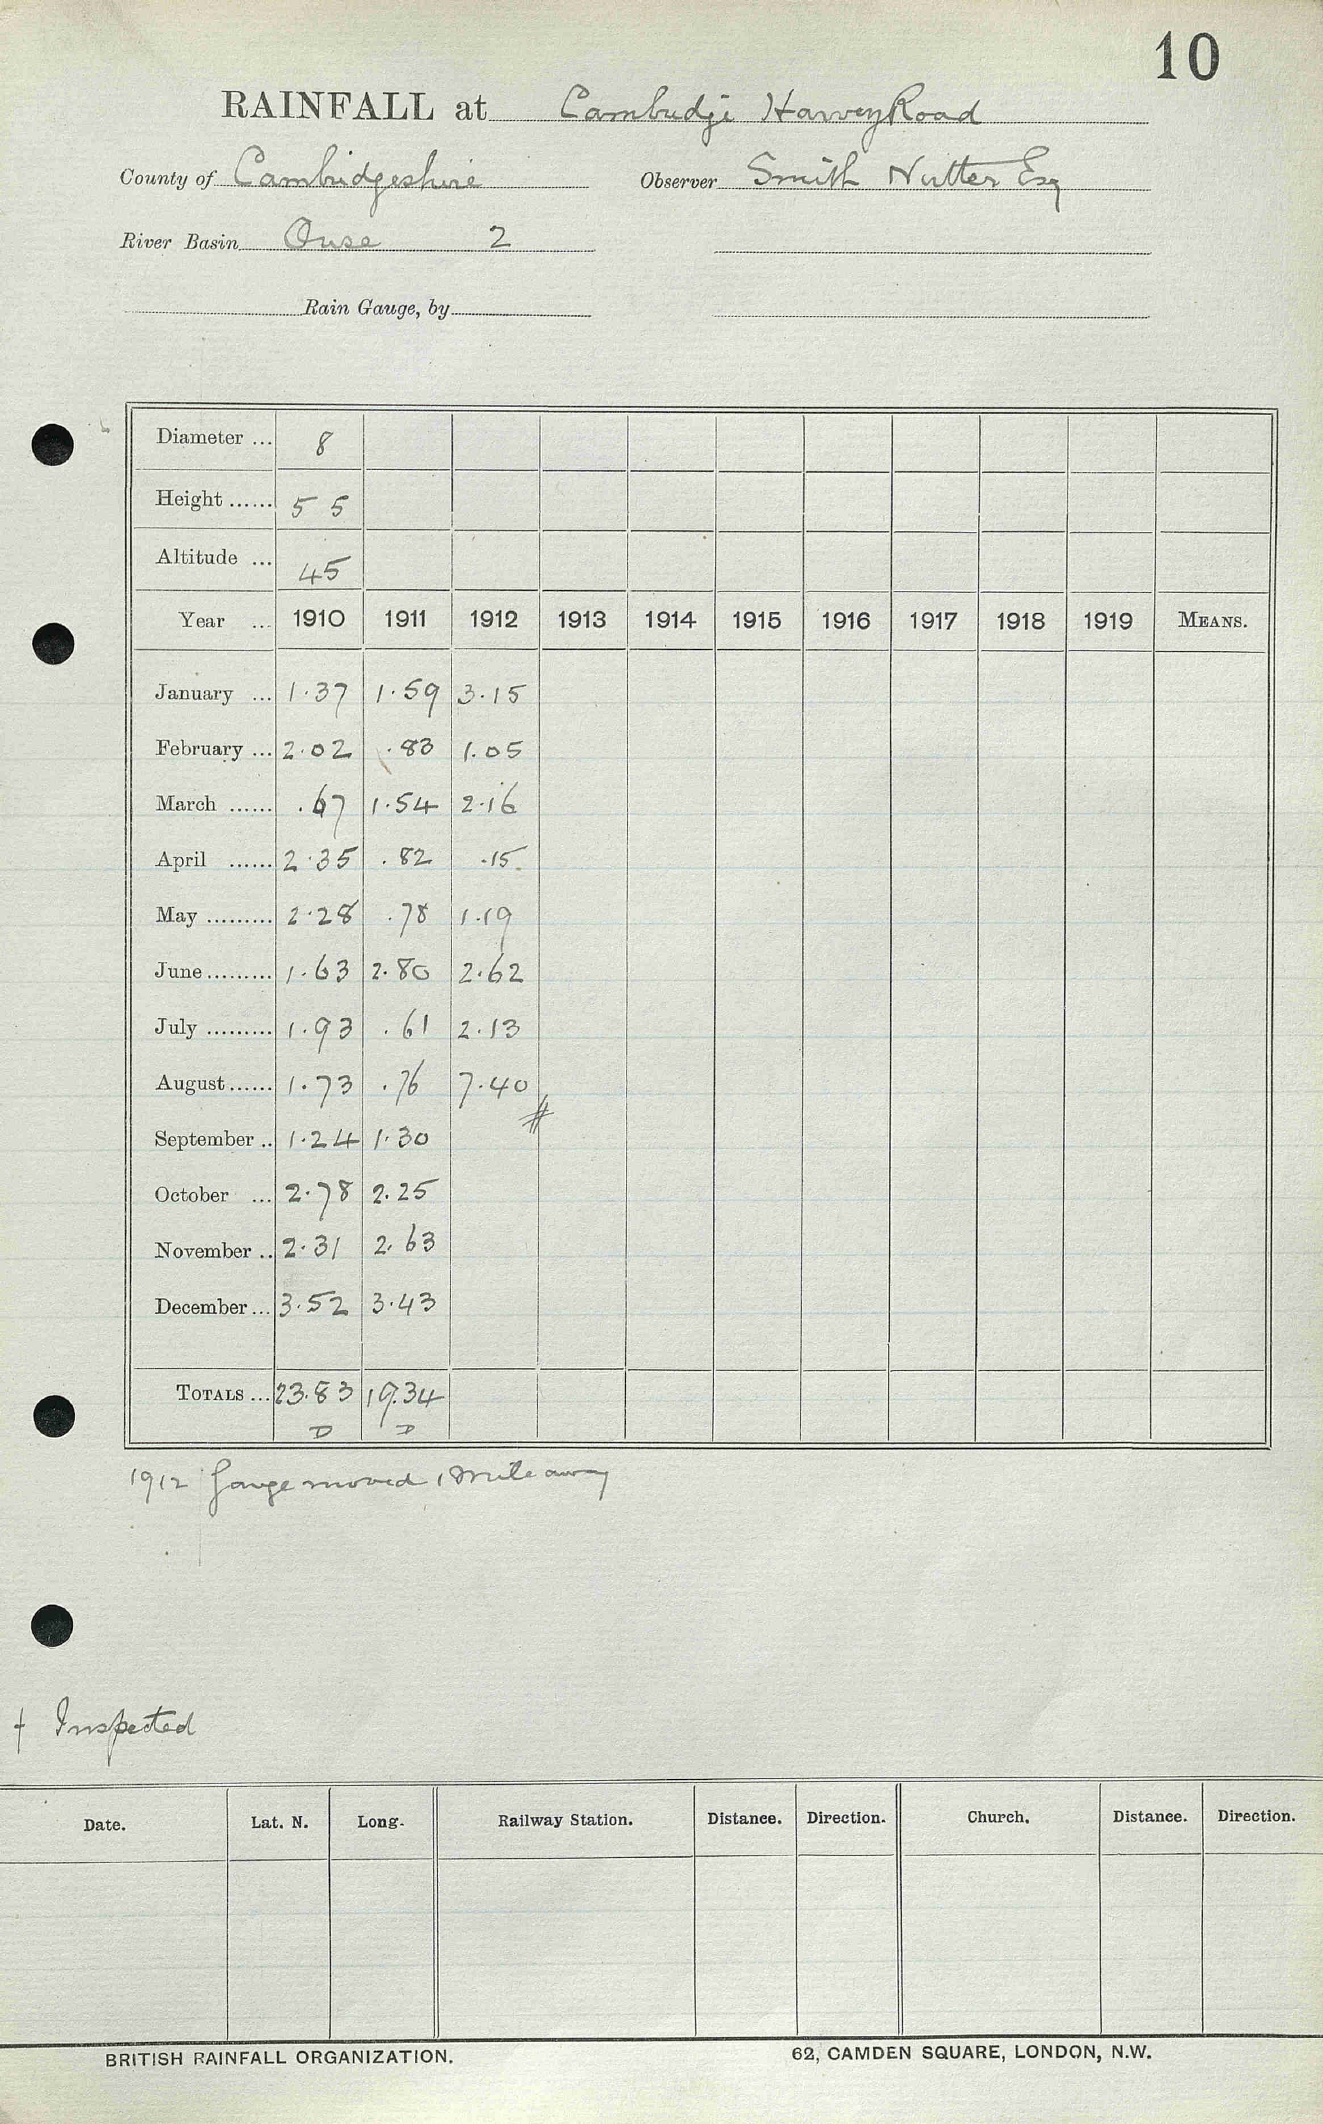 10
RAINFALL at Cambridge Harvey Road
County of Cambridgeshire Observer Smith Nutter Esq
River Basin Ouse 2
Rain Gauge, by
Diameter ... 8
Height ...... 5 5
Altitude ... 45
Year ... 1910 1911 1912 1913 1914 1915 1916 1917 1918 1919 MEANS.
January ... 1.37 1.59 3.15
February ... 2.02 .83 1.05
March ...... .67 1.54 2.16
April ...... 2.35 .82 .15
May ......... 2.28 .78 1.19
June ......... 1.63 2.80 2.62
July ......... 1.93 .61 2.13
August ...... 1.73 .76 7.40
#
September .. 1.24 1.30
October ... 2.78 2.25
November .. 2.31 2.63
December ... 3.52 3.43
TOTALS ... 23.83 19.34
D D
1912 Gauge moved 1 mile away
† Inspected
Date. Lat. N. Long. Railway Station. Distance. Direction. Church. Distance. Direction.
BRITISH RAINFALL ORGANIZATION. 62, CAMDEN SQUARE, LONDON, N.W.